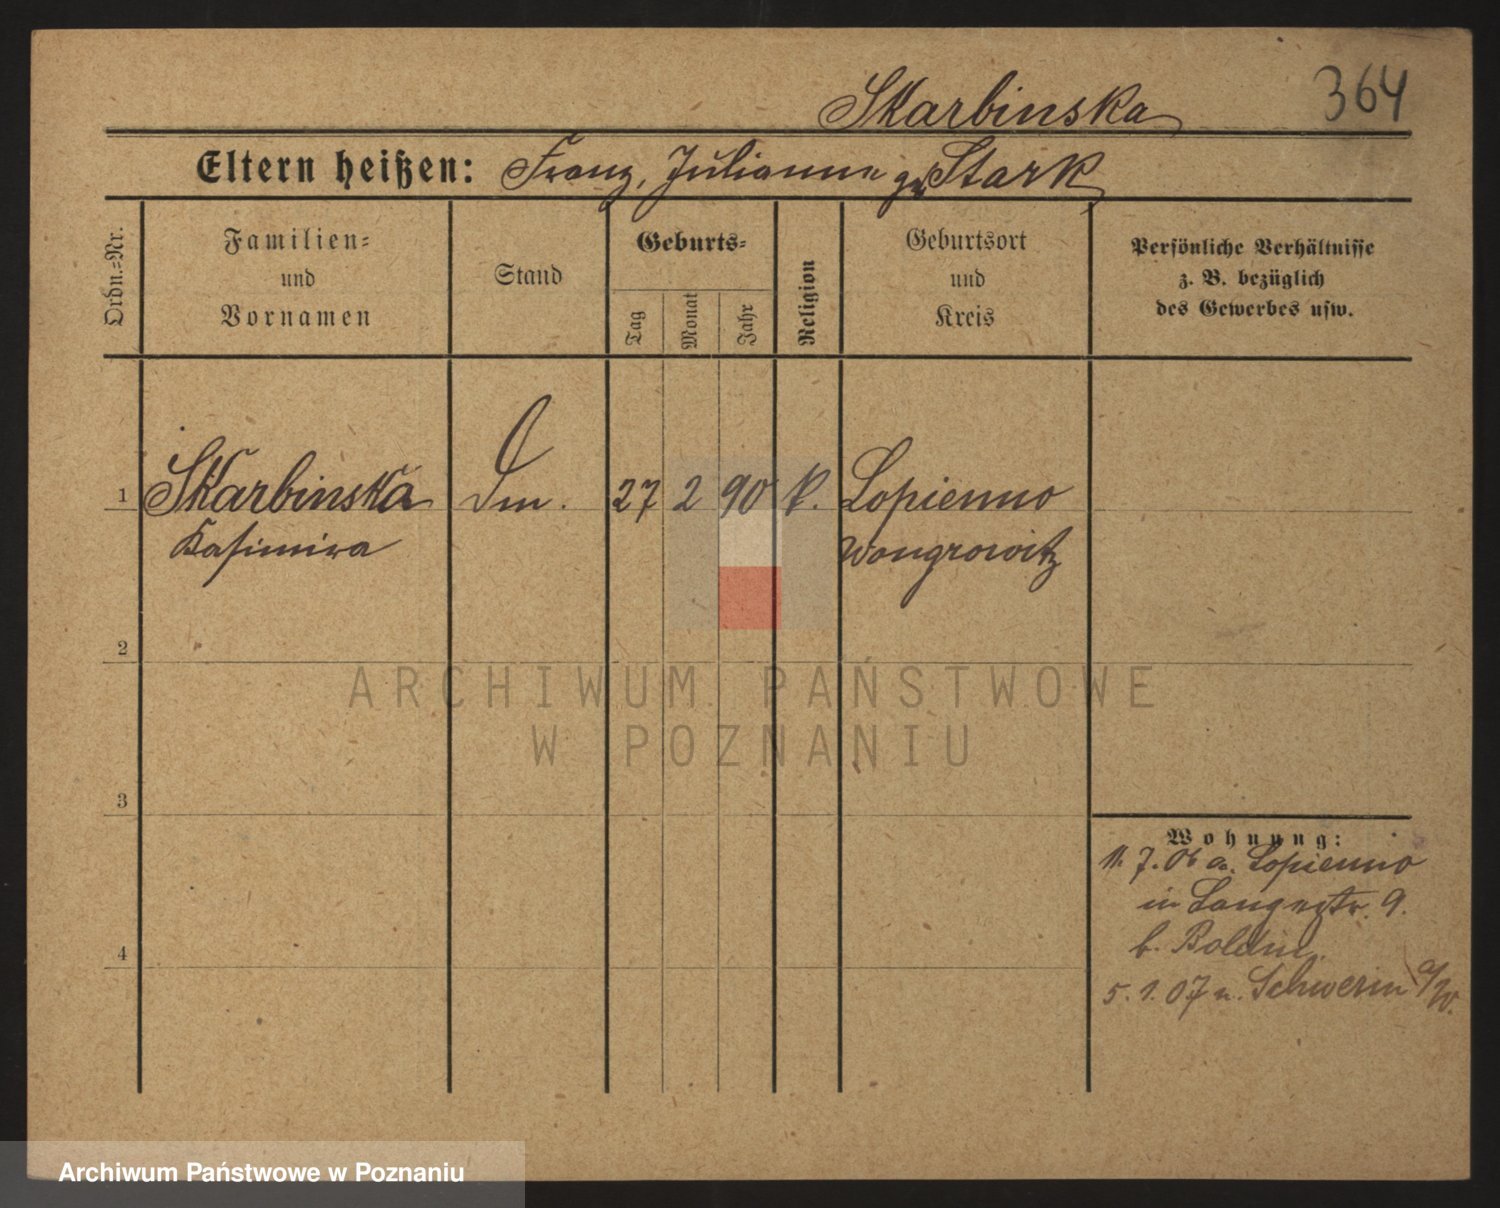 364
Skarbinska
Eltern heißen: Franz, Julianna gb Stark
Ordn.-Nr.
Familien-
und
Vornamen
Stand
Geburts-
Tag
Monat
Jahr
Religion
Geburtsort
und
Kreis
Persönliche Verhältnisse
z. B. bezüglich
des Gewerbes usw.
1 Skarbinska Dm. 27 2 90 k. Lopienno
Kasimira Wongrowitz
2
ARCHIWUM PAŃSTWOWE
W POZNANIU
3
Wohnung:
11. 7. 06 a. Lopienno
in Langestr. 9.
b.
4
5. 1. 07 n. Schwerin a/W.
Archiwum Państwowe w Poznaniu